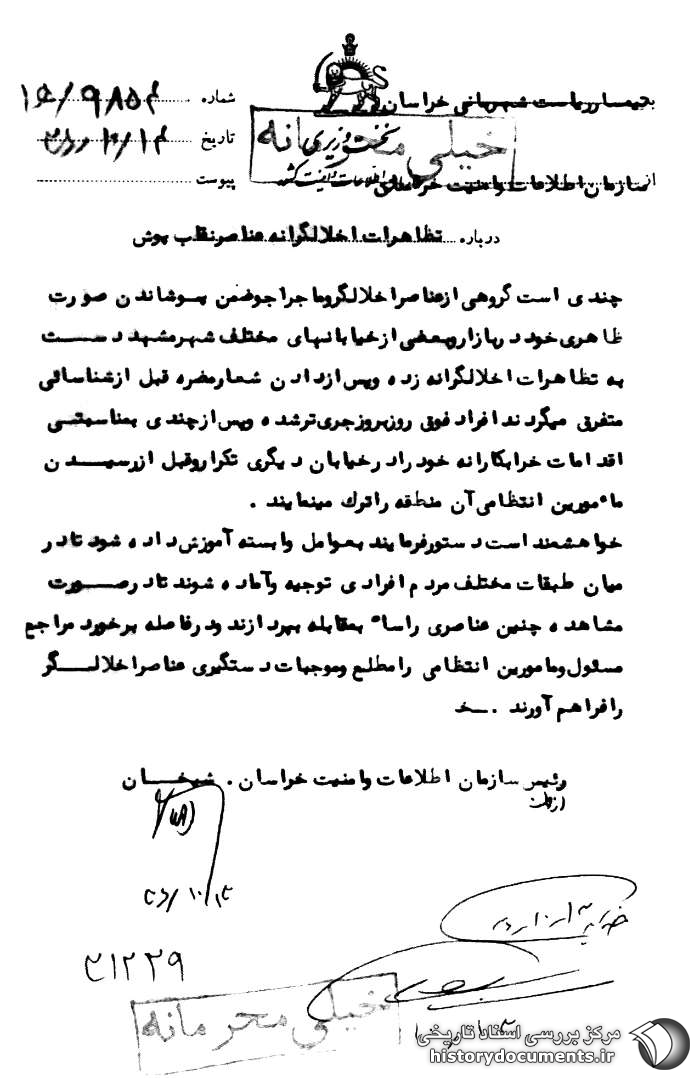 به تیمسار ریاست شهربانی خراسان
شماره
نخست وزیری
خیلی محرمانه
تاریخ
از سازمان اطلاعات و امنیت خراسان
سازمان اطلاعات و امنیت کشور
پیوست
درباره تظاهرات اخلالگرانه عناصر نقاب پوش
چندی است گروهی از عناصر اخلالگر و ماجراجو ضمن پوشاندن صورت
ظاهری خود در بازار و بعضی از خیابانهای مختلف شهر مشهد دست
به تظاهرات اخلالگرانه زده و پس از دادن شعار مضره قبل از شناسائی
متفرق میگردند افراد فوق روز بروز جری تر شده و پس از چندی بمناسبتی
اقدامات خرابکارانه خود را در خیابان دیگری تکرار و قبل از رسیدن
مأمورین انتظامی آن منطقه را ترك مینمایند .
خواهشمند است دستور فرمایند بعوامل وابسته آموزش داده شود تا در
میان طبقات مختلف مردم افرادی توجیه و آماده شوند تا در صورت
مشاهده چنین عناصری راساً بمقابله بپردازند و در فاصله برخورد مراجع
مسئول و مامورین انتظامی را مطلع و موجبات دستگیری عناصر اخلالگر
را فراهم آورند . خ
رئیس سازمان اطلاعات و امنیت خراسان . شیخان
از طرف
خیلی محرمانه
مرکز بررسی اسناد تاریخی
historydocuments.ir